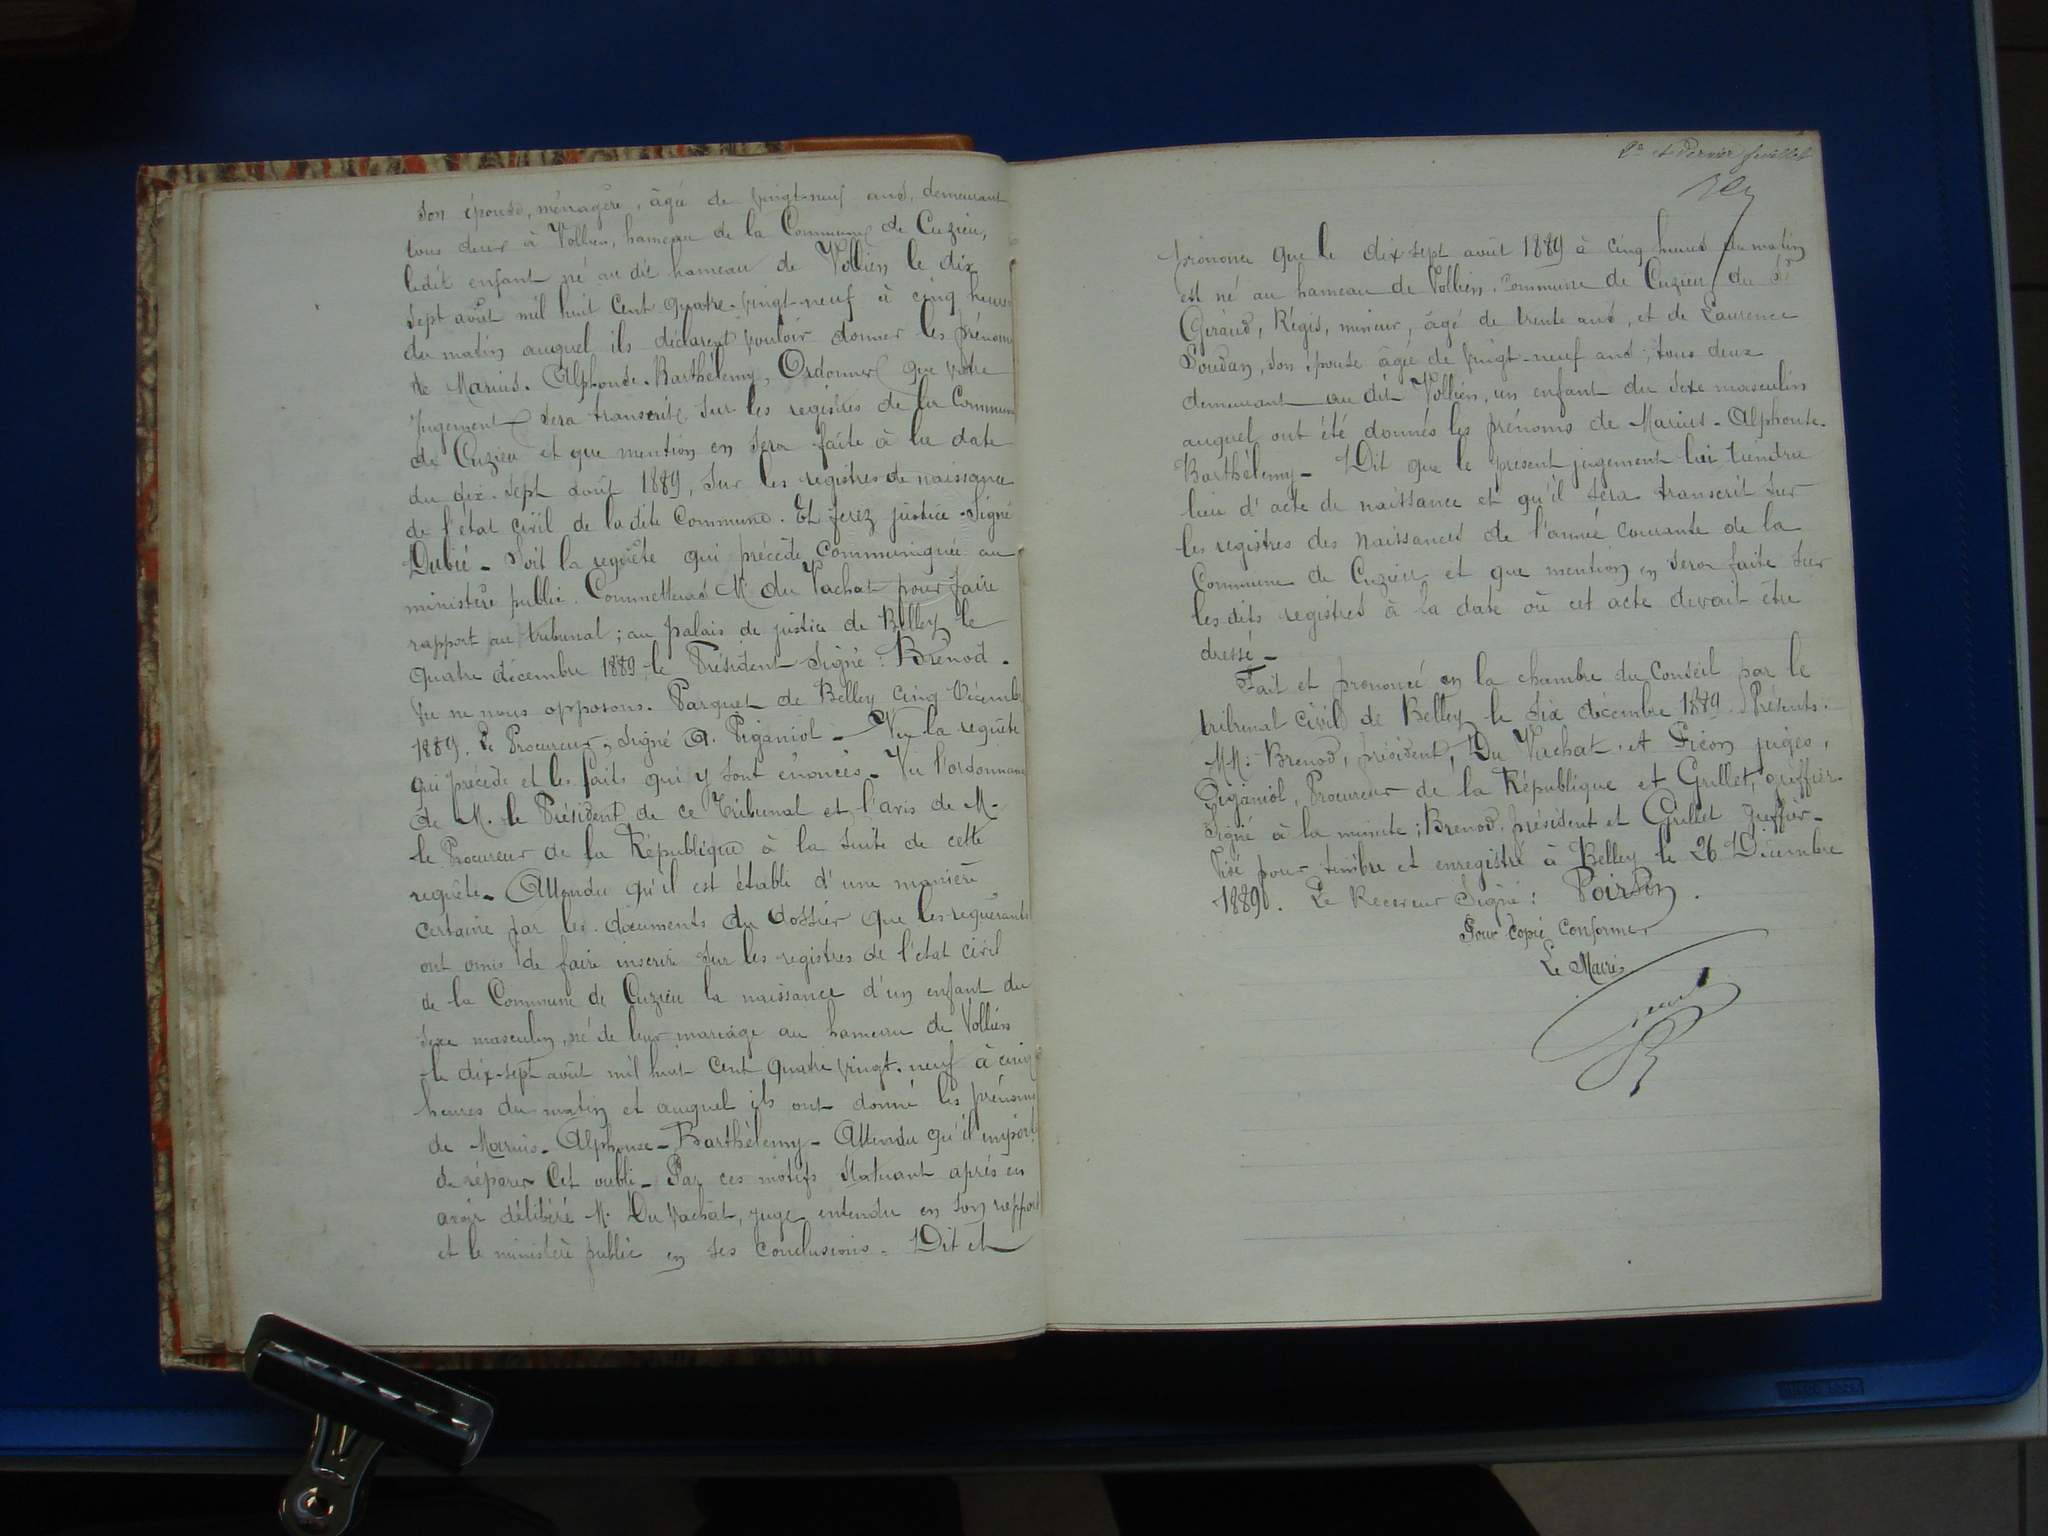 son épouse, ménagère, âgée de vingt-neuf ans, demeurant
tous deux à Vollien, hameau de la Commune de Cuzieu,
ledit enfant né au dit hameau de Vollien le dix
sept août mil huit cent quatre-vingt-neuf à cinq heures
du matin auquel ils déclarent vouloir donner les prénoms
de Marius. Alphonse. Barthélemy, Ordonner que votre
jugement sera transcrit sur les registres de la Commune
de Cuzieu et que mention en sera faite à la date
du dix-sept août 1889, sur les registres de naissance
de l'état civil de la dite Commune. Et ferez justice. Signé
Dubié - Soit la requête qui précède communiquée au
ministère public. Commettons Mr du Vachat pour faire
rapport au tribunal ; au palais de justice de Belley le
quatre décembre 1889 le Président signé : Brenod.
Vu ne nous opposons. Parquet de Belley cinq Décembre
1889. Le Procureur, signé A. Piganiol - Vu la requête
qui précède et les faits qui y sont énoncés - Vu l'ordonnance
de M. le Président de ce Tribunal et l'avis de M.
le Procureur de la République à la suite de cette
requête - Attendu qu'il est établi d'une manière
certaine par les documents du dossier que les requérants
ont omis de faire inscrire sur les registres de l'état civil
de la Commune de Cuzieu la naissance d'un enfant du
sexe masculin, né de leur mariage au hameau de Vollien
le dix-sept août mil huit cent quatre vingt-neuf à cinq
heures du matin et auquel ils ont donné les prénoms
de Marius - Alphonse - Barthélemy - Attendu qu'il importe
de réparer cet oubli - Par ces motifs statuant après en
avoir délibéré M. Du Vachat, juge entendu en son rapport
et le ministère public en ses conclusions. Dit et
2e et Dernier feuillet
prononce que le dix sept août 1889 à cinq heures du matin
est né au hameau de Vollien, commune de Cuzieu du Sr
Géraud, Régis, mineur, âgé de trente ans, et de Laurence
Soudan, son épouse âgée de vingt-neuf ans ; tous deux
demeurant au dit Vollien, un enfant du sexe masculin
auquel ont été donnés les prénoms de Marius - Alphonse -
Barthélemy - Dit que le présent jugement lui tiendra
lieu d'acte de naissance et qu'il sera transcrit sur
les registres des naissances de l'année courante de la
Commune de Cuzieu et que mention en sera faite sur
les dits registres à la date où cet acte devait être
dressé -
Fait et prononcé en la chambre du Conseil par le
tribunal civil de Belley le six décembre 1889. Présents :
MM. Brenod, président, Du Vachat et juges,
Piganiol, Procureur de la République et Grillet, greffier.
Signé à la minute : Brenod, président et Grillet greffier -
Visé pour timbre et enregistré à Belley le 26 Décembre
1889. Le Receveur Signé : Poirson.
Pour copie conforme
Le Maire